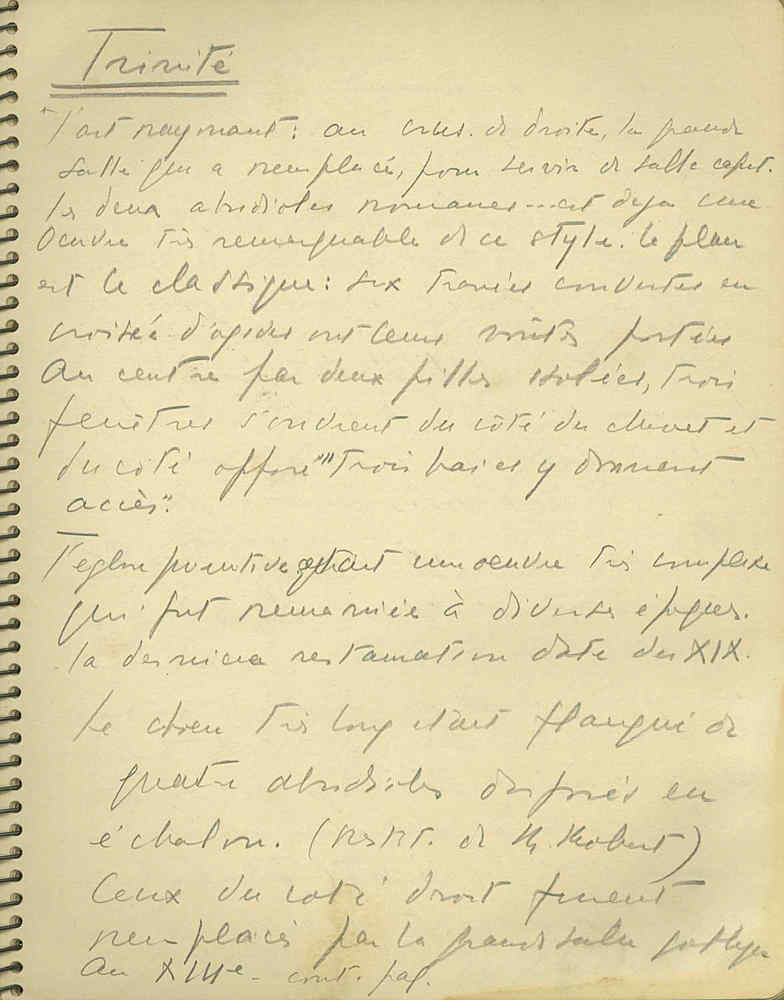 Trinité
"l'art rayonnant: au crois. de droite, la grande
salle qui a remplacé, pour servir de salle capit.
les deux absidioles romanes --- est deja une
Oeuvre très remarquable de ce style. le plan
est le classique: six travées couvertes en
croisée d'ogives ont leurs voûtes portées
au centre par deux piles isolées, trois
fenêtres s'ouvrent du côté du chevet et
du coté opposé "" trois baies y donnent
accès".
L'eglise primitive était une oeuvre très complexe
qui fut remaniée à diverses époques.
la derniere restauration date du XIX.
Le choeur très long était flanqué de
quatre absidioles disposés en
échelon. (rest. de Robert)
Ceux du coté droit furent
remplacés par la grande salle gothique
au XIIIe - cont. pag.